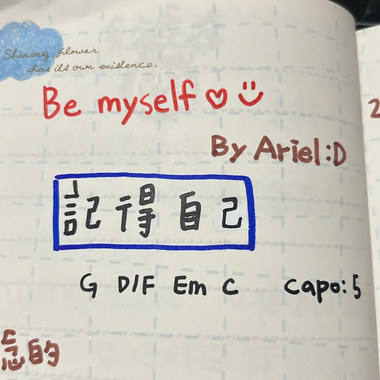 Shining flower
has its own existence.
Be myself ♡ :)
By Ariel:D
記得自己
G D/F Em C Capo:5
2
念的